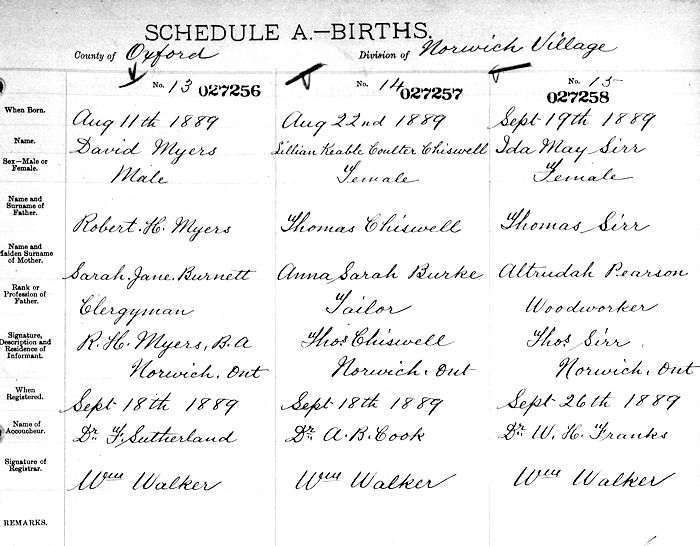 SCHEDULE A.—BIRTHS.
County of Oxford Division of Norwich Village
No. 13 027256 No. 14 027257 No. 15 027258
When Born. Aug 11th 1889 Aug 22nd 1889 Sept 19th 1889
Name. David Myers Lillian Keable Coulter Chiswell Ida May Sirr
Sex—Male or Female. Male Female Female
Name and Surname of Father. Robert. H. Myers Thomas Chiswell Thomas Sirr
Name and Maiden Surname of Mother. Sarah. Jane. Burnett Anna Sarah Burke Altrudah Pearson
Rank or Profession of Father. Clergyman Tailor Woodworker
Signature, Description and Residence of Informant. R. H. Myers, B. A Thos Chiswell Thos Sirr.
Norwich. Ont Norwich. Ont Norwich. Ont
When Registered. Sept 18th 1889 Sept 18th 1889 Sept 26th 1889
Name of Accoucheur. Dr. F. Sutherland Dr. A. B. Cook Dr. W. H. Franks
Signature of Registrar. Wm Walker Wm Walker Wm Walker
REMARKS.